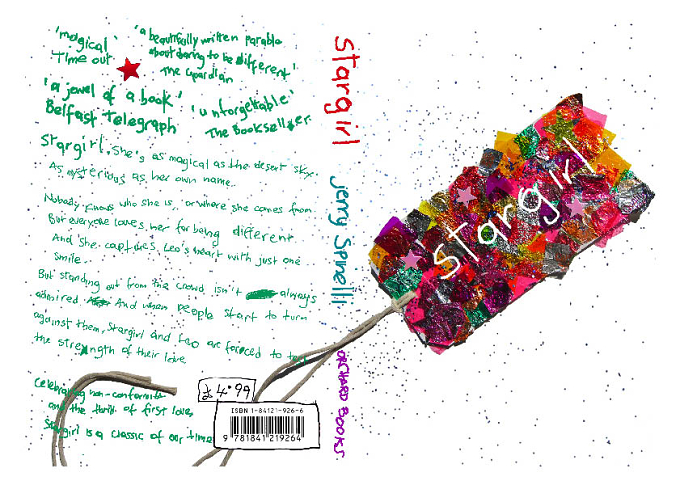 'magical'
Time out
'a beautifully written parable
about daring to be different'
The Guardian
'a jewel of a book'
Belfast Telegraph
'unforgettable'
The Bookseller.
Stargirl. She's as magical as the desert sky.
As mysterious as her own name.
Nobody knows who she is, or where she comes from
But everyone loves her for being different
And she captures Leo's heart with just one
smile.
But standing out from the crowd isn't always
admired And when people start to turn
against them, Stargirl and Leo are foreced to test
the strength of their love
Celebrating non-conformity
and the thrill of first love,
Stargirl is a classic of our time
£4.99
ISBN 1-84121-926-6
9 781841 219264
stargirl
jerry Spinelli
ORCHARD BOOKS.
stargirl